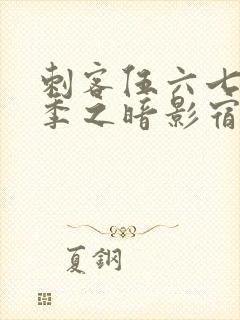 刺客伍六七
季之暗影宿
夏鋼